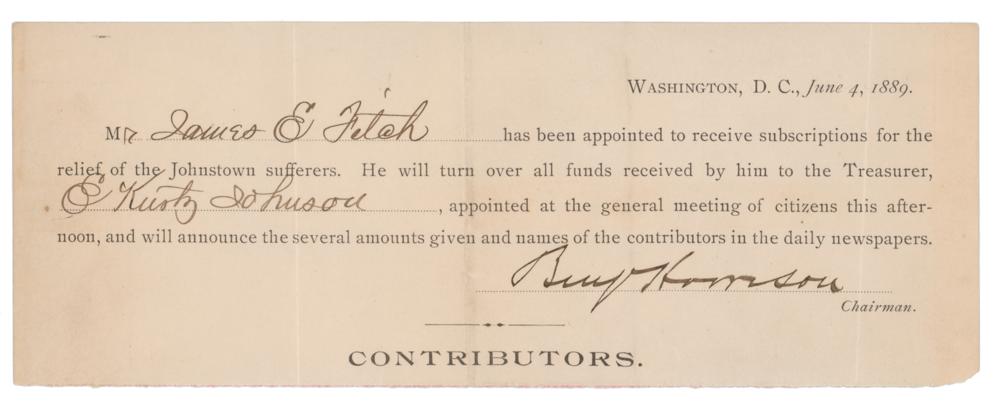 Washington, D. C., June 4, 1889.
Mr James E Fitch has been appointed to receive subscriptions for the
relief of the Johnstown sufferers. He will turn over all funds received by him to the Treasurer,
E Kurtz Johnson, appointed at the general meeting of citizens this after-
noon, and will announce the several amounts given and names of the contributors in the daily newspapers.
Benj Harrison
Chairman.
CONTRIBUTORS.